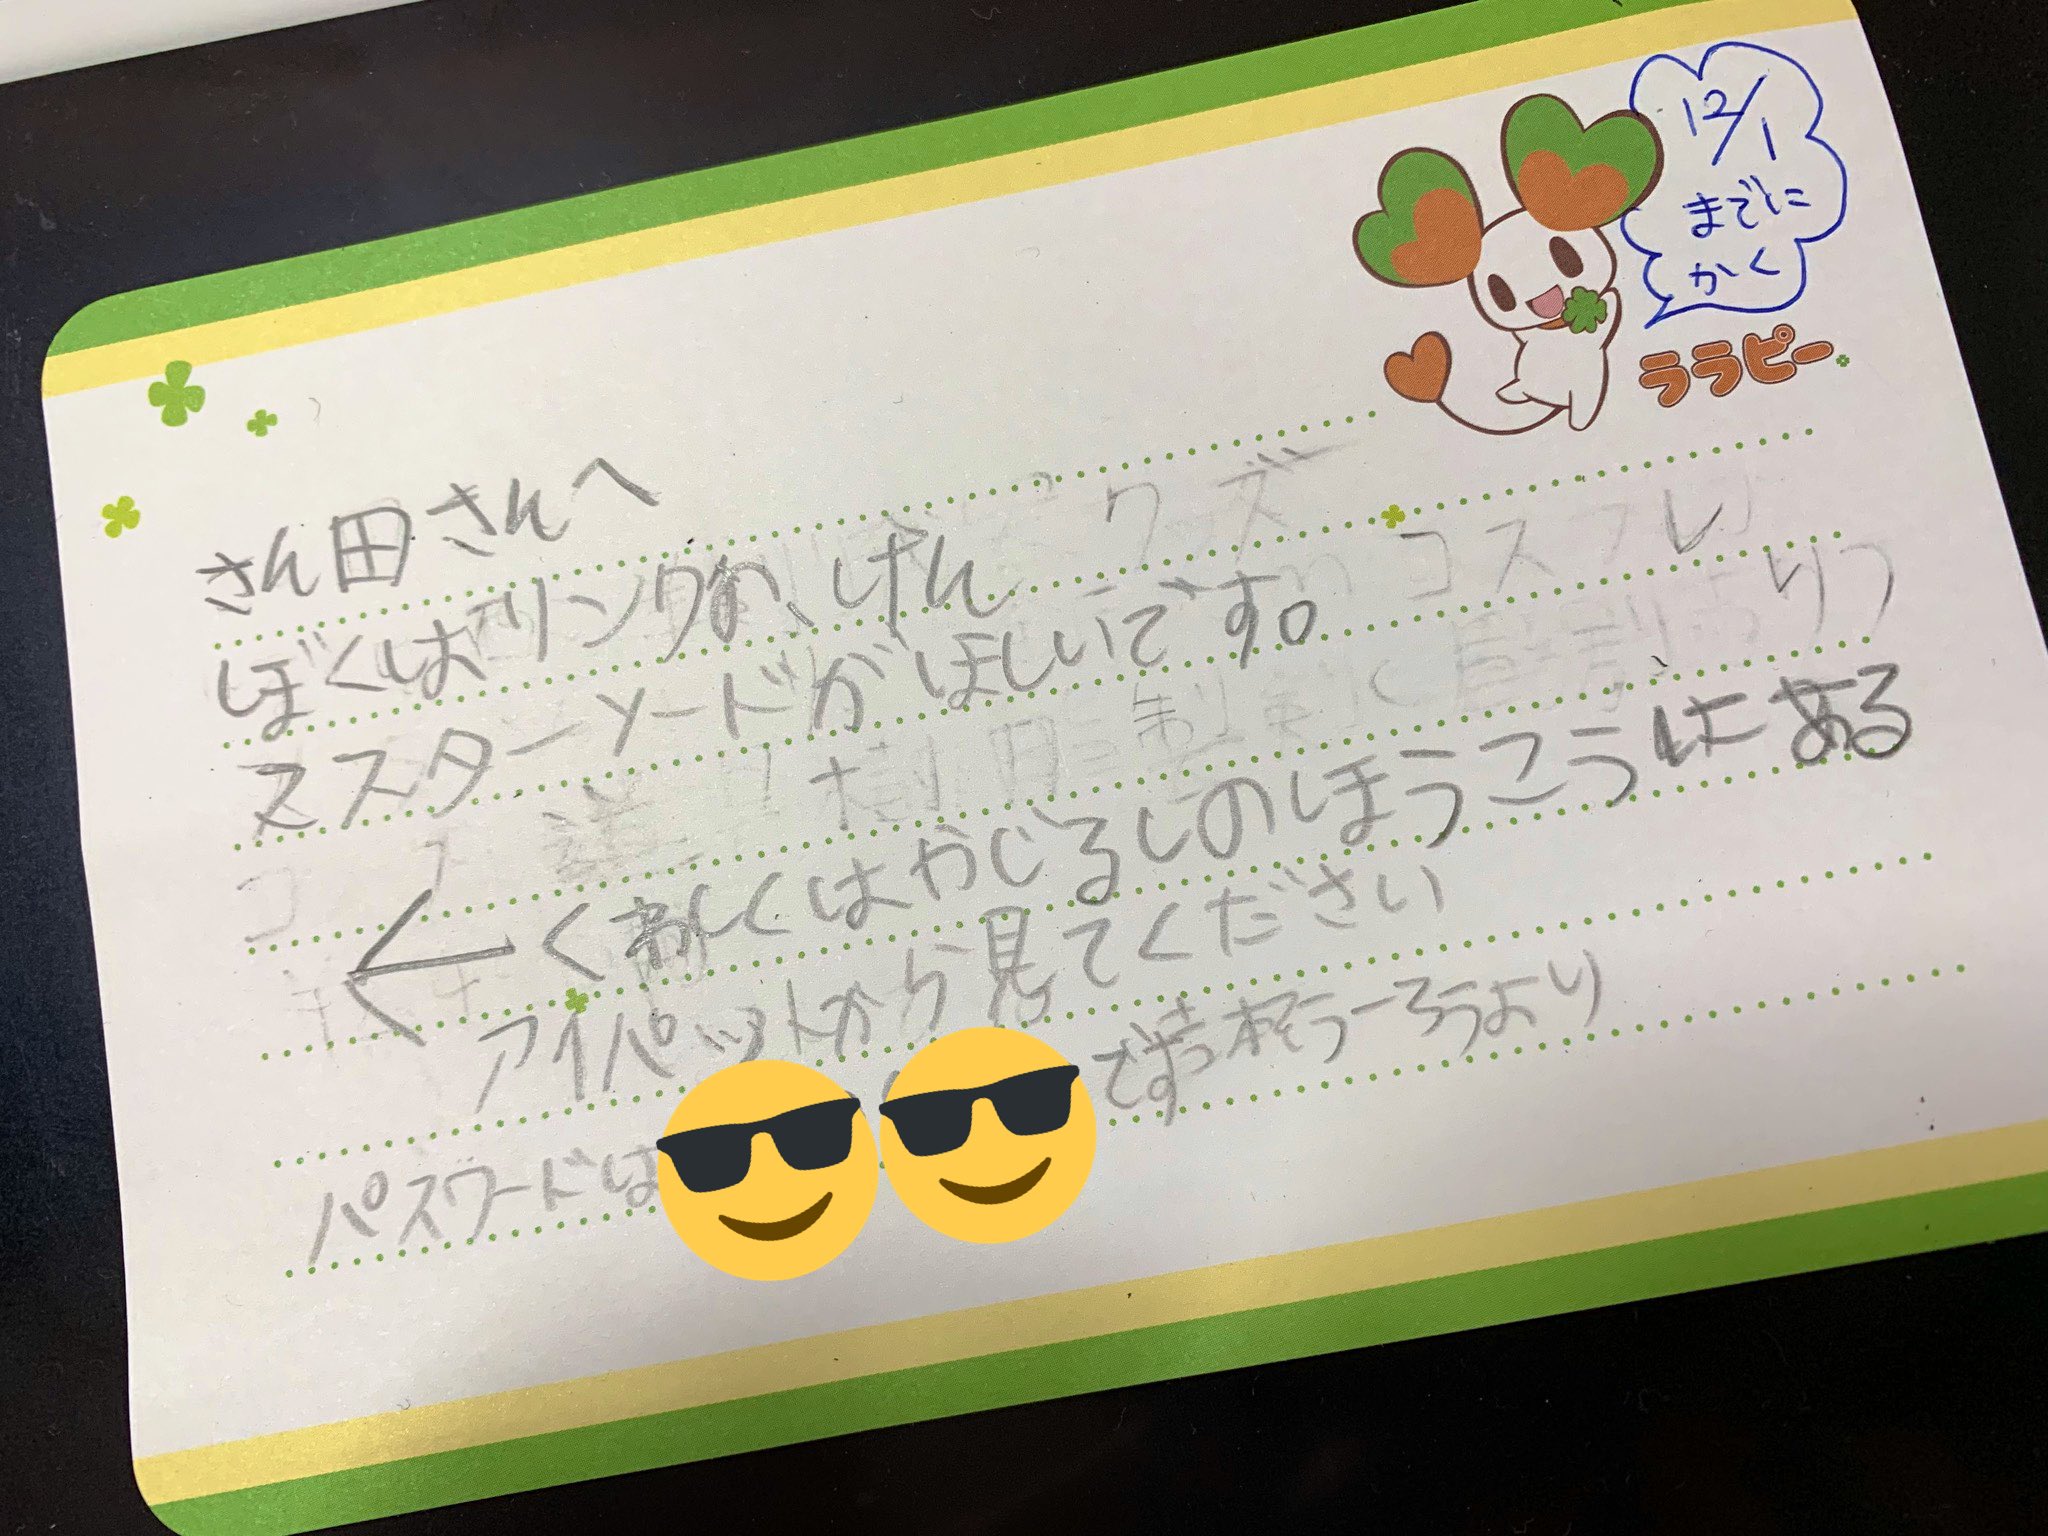 12/1
までに
かく
ララピー
さん田さんへ
ぼくはリンクの、けん
マスターソードがほしいです。
←くわしくはやじるしのほうこうにある
アイパットから見てください
パスワードは
です
うーろうより